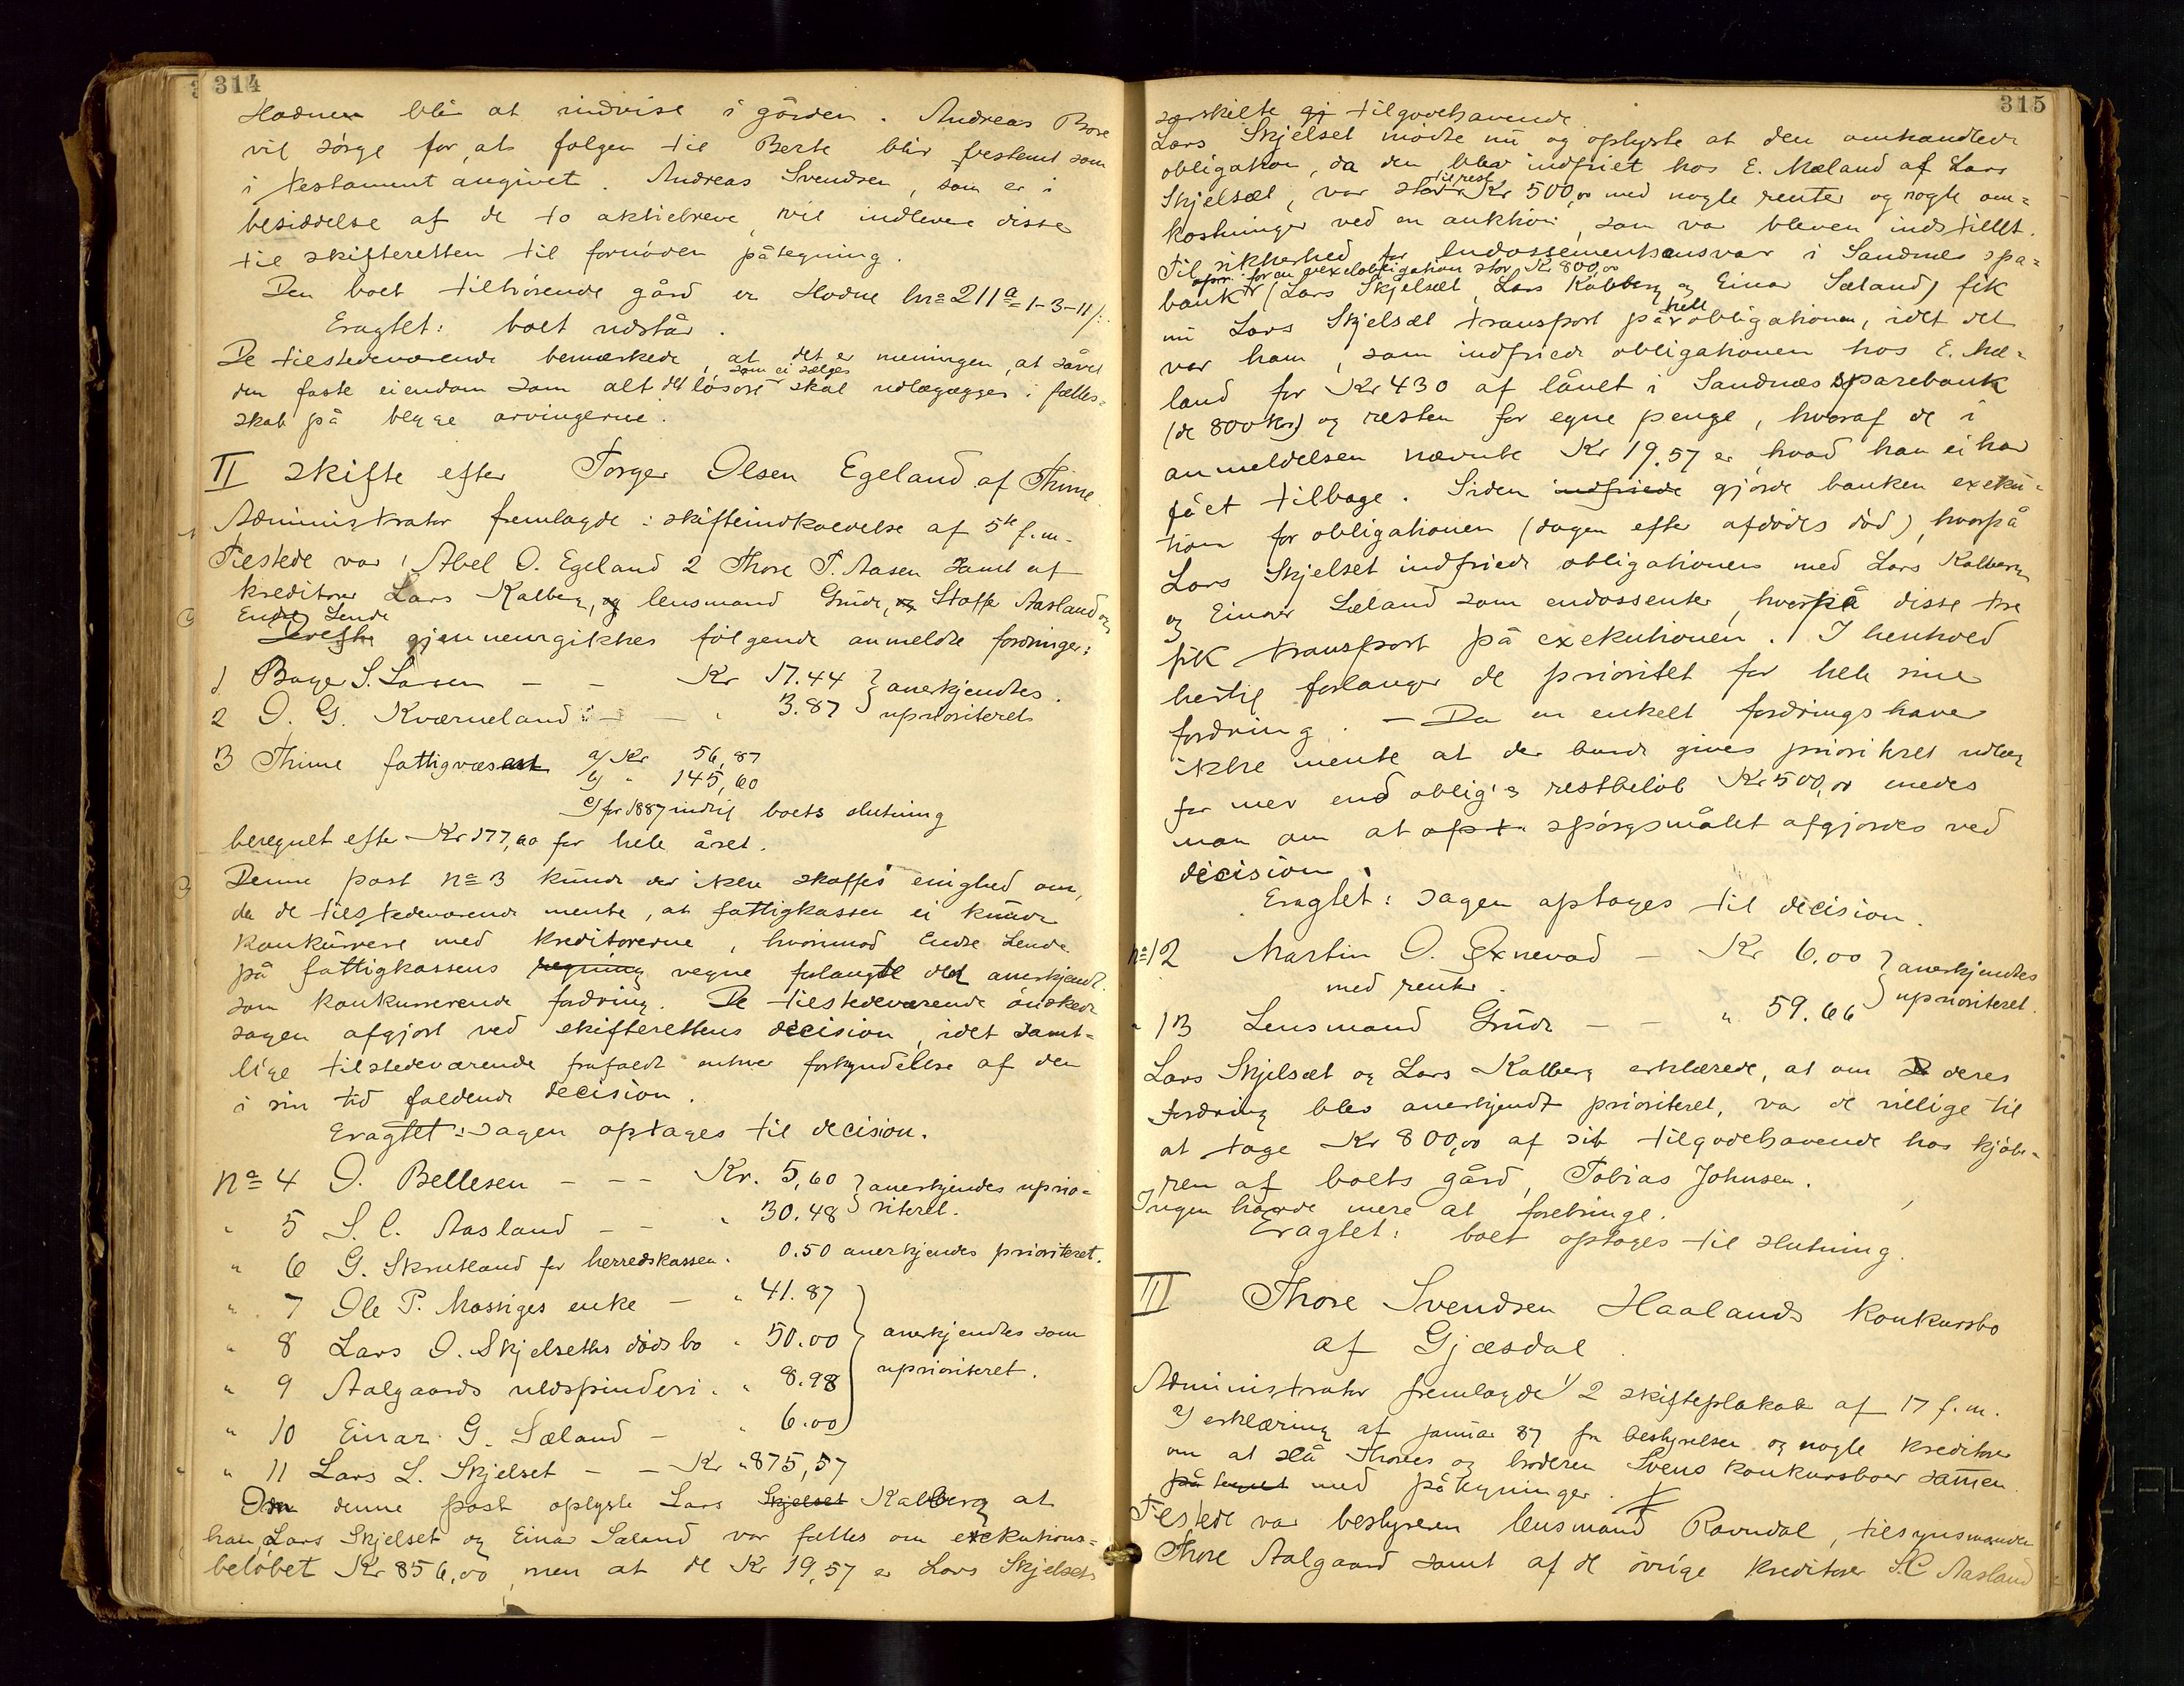 314
Hodnen bli at indvise i gården. Andreas Bore
vil sørge for, at følgen til Berte blir bestemt som
i testament angivet. Andreas Svendsen, som er i
besiddelse af de to aktiebreve, vil indlevere disse
til skifteretten til fornøden påtegning.
Den boet tilhørende gård er Hodne lnr 211a = 1-3-11/:
Eragtet: boet udstår.
De tilstedeværende bemærkede, at det er meningen, at såvel
den faste eiendom som alt det løsøre som ei sælges skal udlægægges i fælles=
skab på begge arvingerne.
II skifte efter Torger Olsen Egeland af Thime
Administrator fremlagde: skifteindkaldelse af 5te f.m.
Tilstede var 1 Abel O. Egeland 2 Thore T. Aasen samt af
kreditorer Lars Kalberg, og lensmand Grude, og Staffr Aasland og
Endre Lende
Derefter gjennemgikkes følgende anmeldte fordringer:
1 Bøge S. Larsen - - Kr 17.44 } anerkjendtes.
2 O. G. Kværneland - - " 3.87 } uprioriteret
3 Thime fattigvæsen a/ Kr 56,87
b/ " 145,60
c/ for 1887 indtil boets slutning
beregnet efter Kr 177,60 for hele året.
Denne post no 3 kunde der ikke skaffes enighed om,
da de tilstedeværende mente, at fattigkassen ei kunde
konkurrere med kreditorerne, hvorimod Endre Lende
på fattigkassens regning vegne forlangte den anerkjendt
som konkurrerende fordring. De tilstedeværende ønskede
sagen afgjort ved skifterettens decision, idet samt=
lige tilstedeværende frafaldt enhver forkyndelse af den
i sin tid faldende decision.
Eragtet: sagen optages til decision.
no 4 O. Bellesen - - - Kr. 5,60 } anerkjendes uprio=
" 5 S. C. Aasland - - " 30.48 } riteret.
" 6 G. Skrutland for herredskassen. 0.50 anerkjendes prioriteret.
" 7 Ole P. Mossiges enke - " 41.87
" 8 Lars O. Skjelseths dødsbo " 50.00 } anerkjendtes som
" 9 Aalgaards uldspinderi. " 8.98 uprioriteret.
" 10 Einar G. Sæland - " 6.00
" 11 Lars L. Skjelset - - Kr "875,57
Om denne post oplyste Lars Skjelset Kalberg at
han, Lars Skjelset og Einar Sæland var fælles om exekutions=
beløbet Kr 856,00, men at de Kr 19,57 er Lars Skjelsets
315
særskilte gj tilgodehavende
Lars Skjelset mødte nu og oplyste at den omhandlede
obligation, da den blev indfriet hos E. Mæland af Lars
Skjelsæt, var stor til rest Kr 500,00 med nogle renter og nogle om=
kostninger ved en auktion, som var bleven indstillet.
Til sikkerhed for endossementsansvar i Sandnes spa=
opr. for en vexelobligation stor Kr 800,00
bank (Lars Skjelsæt, Lars Kalberg og Einar Sæland) fik
nu Lars Skjelsæt transport på hele obligationen, idet det
var ham, som indfriede obligationen hos E. Mæ=
land for Kr 430 af lånet i Sandnæs sparebank
(de 800 kr) og resten for egne penge, hvoraf de i
anmeldelsen nævnte Kr 19.57 er, hvad han ei har
fået tilbage. Siden indfriede gjorde banken exeku=
tion for obligationen (dagen efter afdødes død), hvorpå
Lars Skjelset indfriede obligationen med Lars Kalberg
og Einar Sæland som endossenter, hvorpå disse tre
fik transport på exekutionen. I henhold
hertil forlanger de prioritet for hele sin
fordring. - Da en enkelt fordringshaver
ikke mente at der burde gives prioriteret udlæg
for mer end oblig's restbeløb Kr 500,00 enedes
man om at opt. spørgsmålet afgjordes ved
decision.
Eragtet: sagen optages til decision.
no 12 Martin O. Exnevad - Kr 6.00 } anerkjendtes
med renter.
" 13 Lensmand Grude - - " 59.66 } uprioriteret.
Lars Skjelsæt og Lars Kalberg erklærede, at om deres
fordring blev anerkjendt prioriteret, var de villige til
at tage Kr 800,00 af sit tilgodehavende hos kjøbe=
ren af boets gård, Tobias Johnsen.
Ingen havde mere at forebringe.
Eragtet: boet optages til slutning.
III Thore Svendsen Haalands konkursbo
af Gjæsdal
Administrator fremlagde 1/ 2 skifteplakat af 17 f.m.
2/ erklæring af januar 87 fra bestyrelsen og nogle kreditorer
om at slå Thores og broderen Svens konkursboer sammen
på tegnet med påtegninger.
Tilstede var bestyreren lensmand Ravndal, tilsynsmanden
Thore Aalgaard samt af de øvrige kreditorer S.C Aasland